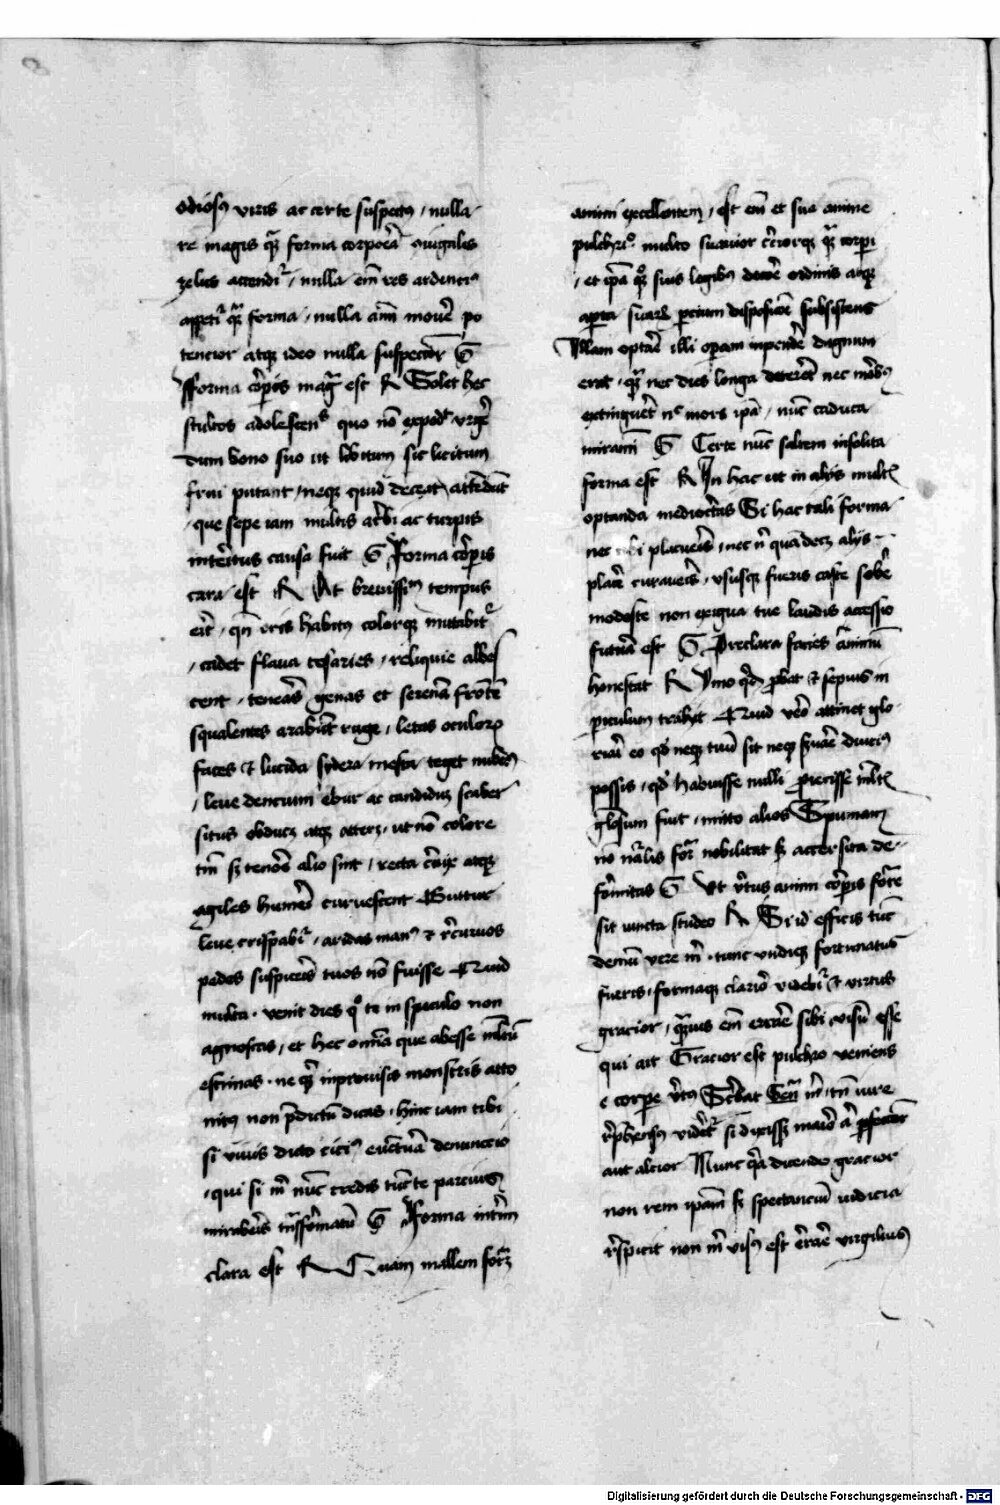 odiosus viris ac certe suspectus / nulla
re magis quam forma corporea coniugalis
zelus accenditur / nulla enim res ardencius
appetitur quam forma / nulla animum movere po
tencior atque ideo nulla suspectior G
fforma corporis magna est R Solet hec
stultos adolescentes quo non expedit urgere
dum bono suo ut libitum sic licitum
frui putant / neque quid deceat attendunt
/ que sepe iam multis acerbi ac turpis
interitus causa fuit G Forma corporis
cara est R At brevissimum tempus
erit / quin oris habitus colorque mutabitur
/ cadet flava cesaries / reliquie albes
cent / teneras genas et serenam frontem
squalentes arabunt ruge / letas oculorum
faces et lucida sydera mesta teget nubes
/ leve dencium ebur ac candidum scaber
situs obducet atque atteret / ut non colore
tantum sed tenore alio sint / recta cervix atque
agiles humeri curvescent Guttur
leve crispabitur / aridas manus et recurvos
pedes suspiceris tuos non fuisse Quid
multa . veniet dies quo te in speculo non
agnoscas / et hec omnia que abesse multum
estimas . ne quando inprovisis monstris atto
nitus non predictum dicas . hinc iam tibi
si vivis dicto cicius eventura denunccio
. qui si michi nunc credis tunc te parcius
miraberis transformatum G Forma interim
clara est R Quam mallem fortem
animi excellentem / est enim et sua anime
pulchritudo multo suavior cerciorque quam corpori
/ et ipsa quoque suis legibus decore ordinis atque
apta suarum parcium disposicione subsistens
Illam optare illi operam inpendere dignum
erat / quam nec dies longa deterret nec morbus
extingueret nec mors ipsa / nunc caduca
miramini G Certe nunc saltem insolita
forma est R In hac ut in aliis multis
optanda mediocritas Si hac tali forma
nec tibi placueris / nec non quam decet aliis
placere curaveris / ususque fueris caste sobrie
modeste non exigua tue laudis accessio
futura est G Preclara facies animum
honestat R Ymo quod probat et sepius in
periculum trahit Quid vero attinet glo
riari eo quod neque tuum sit neque servare diucius
possis / quod habuisse nulli preterisse multis
gloriosum fuit / mitto alios Spurinam
non naturalis forma nobilitat sed accersita de
formitas G Ut virtus animi corporis forme
sit iuncta studeo R Si id efficis tunc
demum vere michi . tunc undique fortunatus
fueris . formaque clarior videbitur et virtus
gracior / quamvis enim errare sibi visus esse
qui ait Gracior est pulchro veniens
e corpore virtus Scribat Seneca michi tamen iure
reprehensus videretur si dixisset maior aut perfectior
aut altior Nunc quia dicendo gracior
non rem ipsam sed spectancium iudicia
respicit non michi visus est errare virgilius
Digitalisierung gefördert durch die Deutsche Forschungsgemeinschaft - DFG